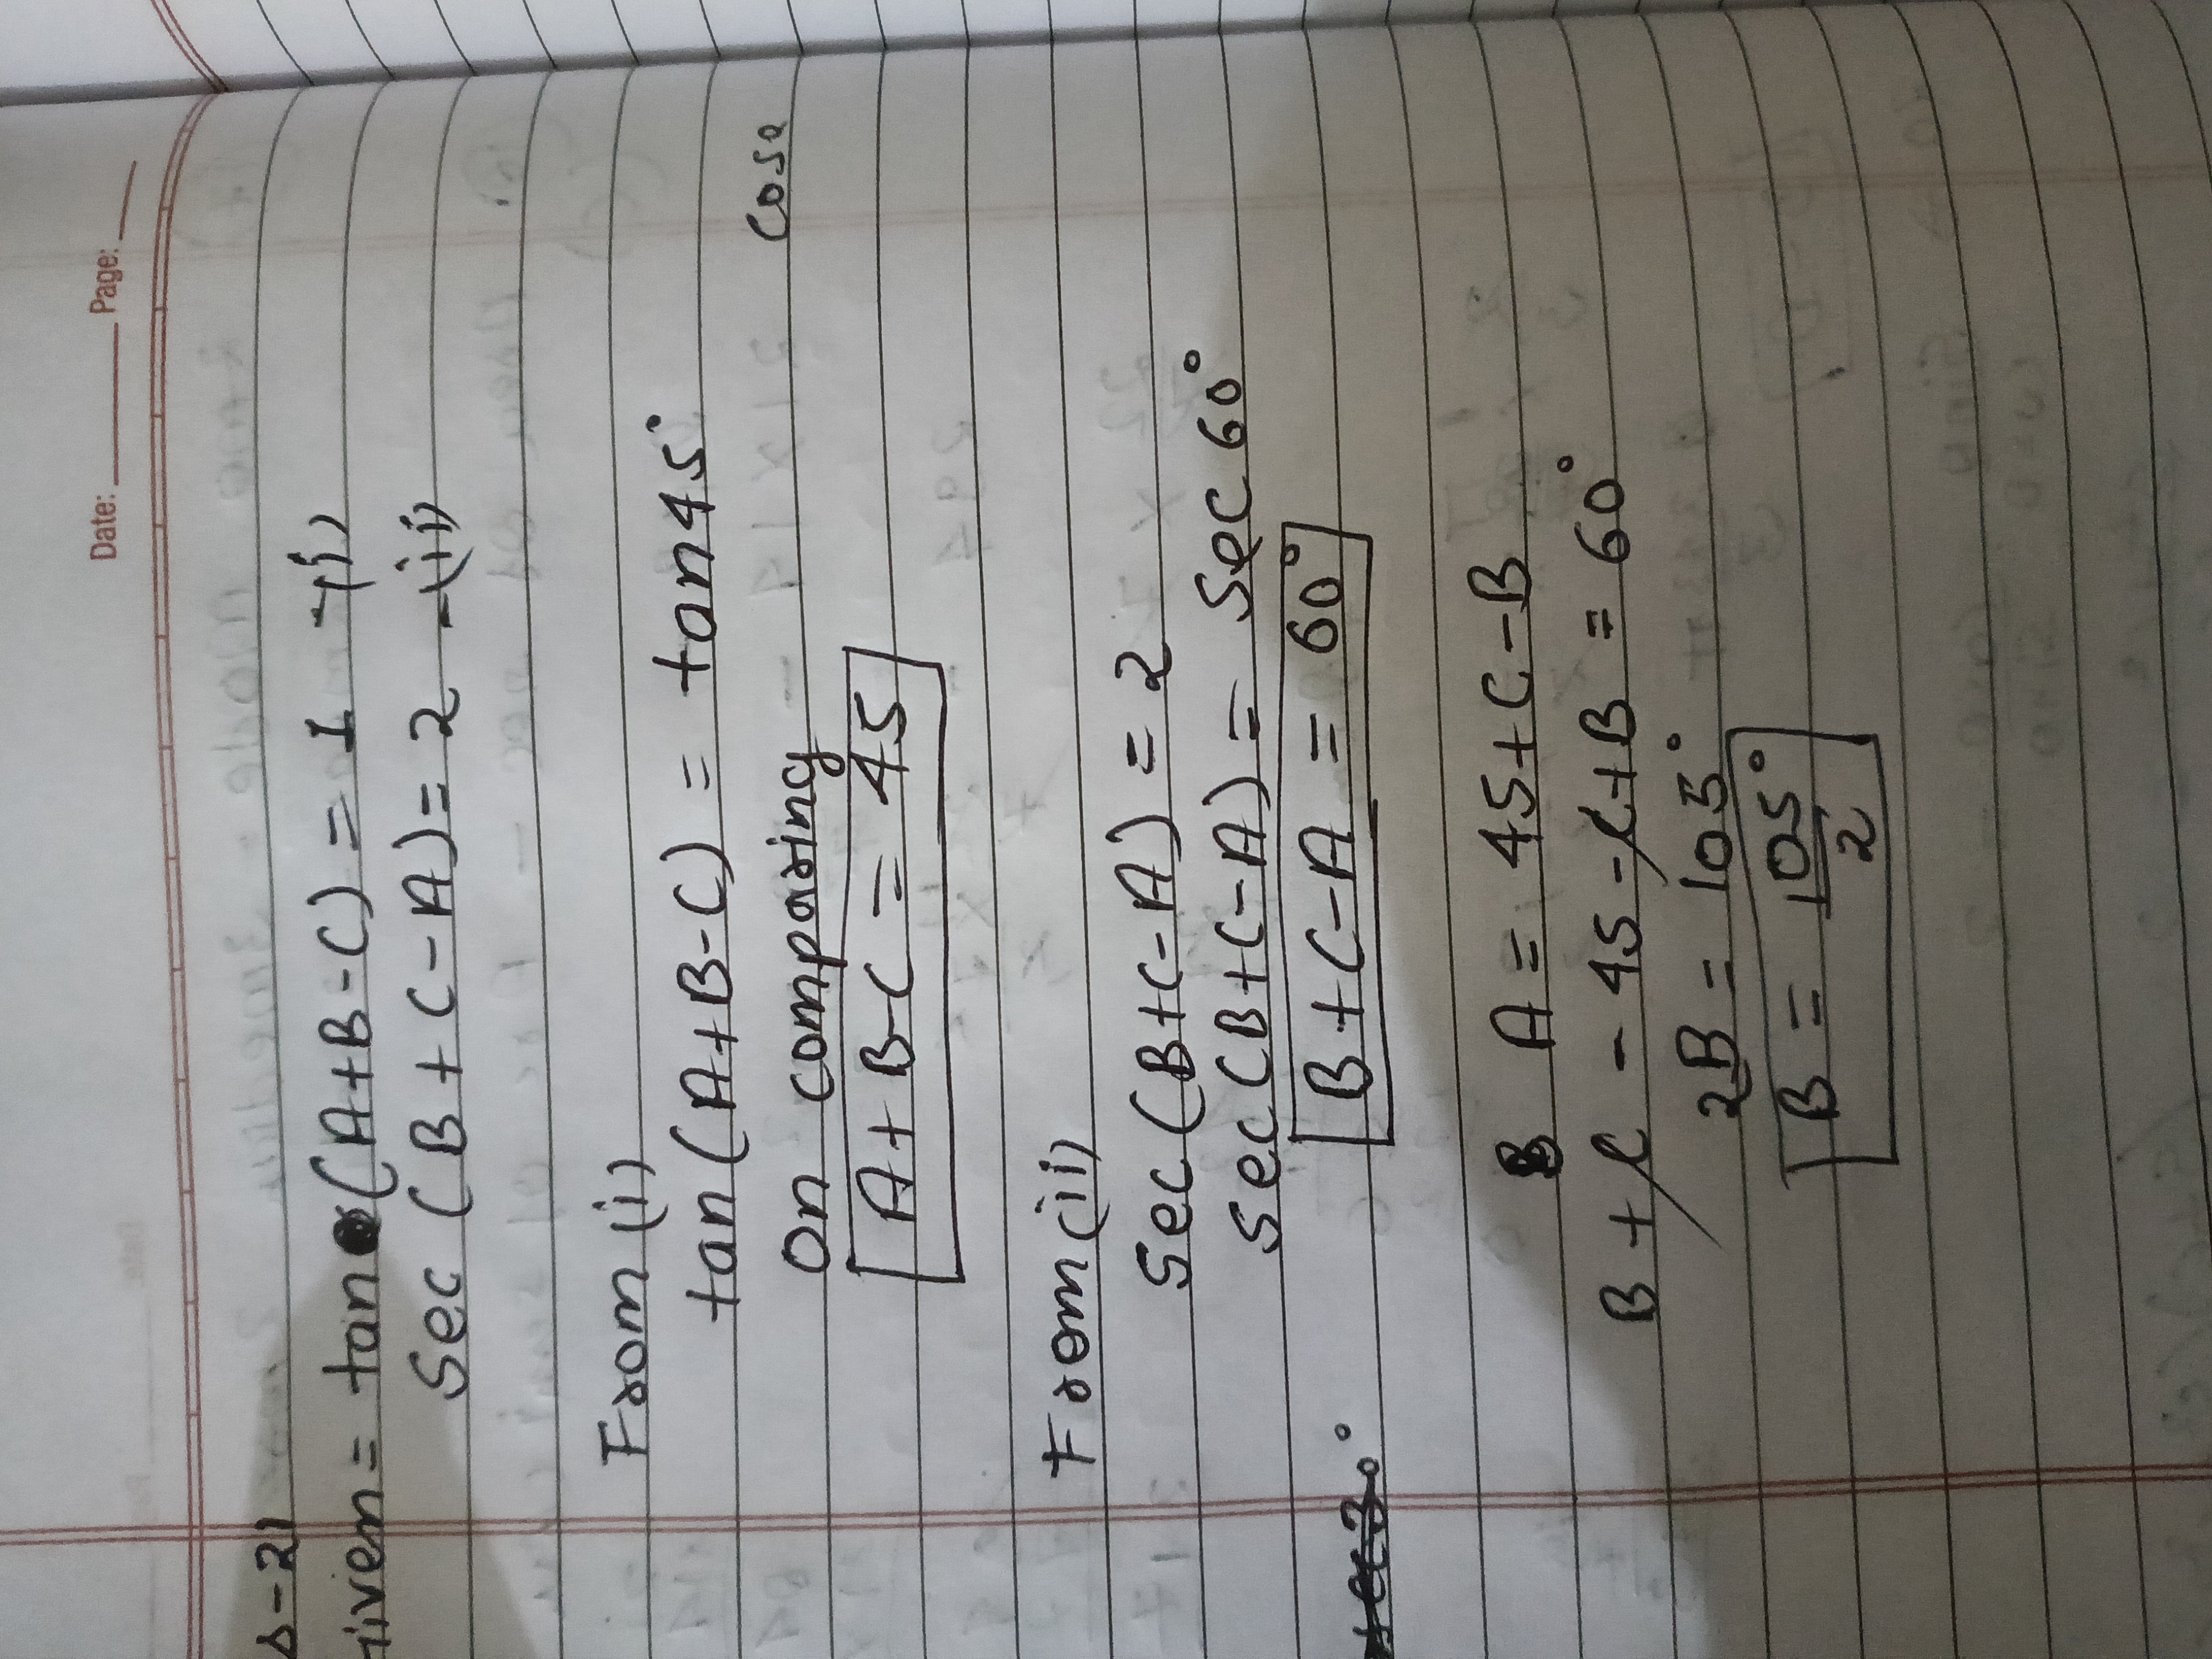 Date: ______ Page: ______
s-21
iven = tan (A+B-C) = 1 -(i)
Sec (B+C-A) = 2 -(ii)
From (i)
tan (A+B-C) = tan 45°
On comparing cose
A+B-C = 45
From (ii)
Sec (B+C-A) = 2
Sec (B+C-A) = Sec 60°
B+C-A = 60°
B A = 45+C-B
B+C - 45 - C+B = 60°
2B = 105°
B = 105°/2